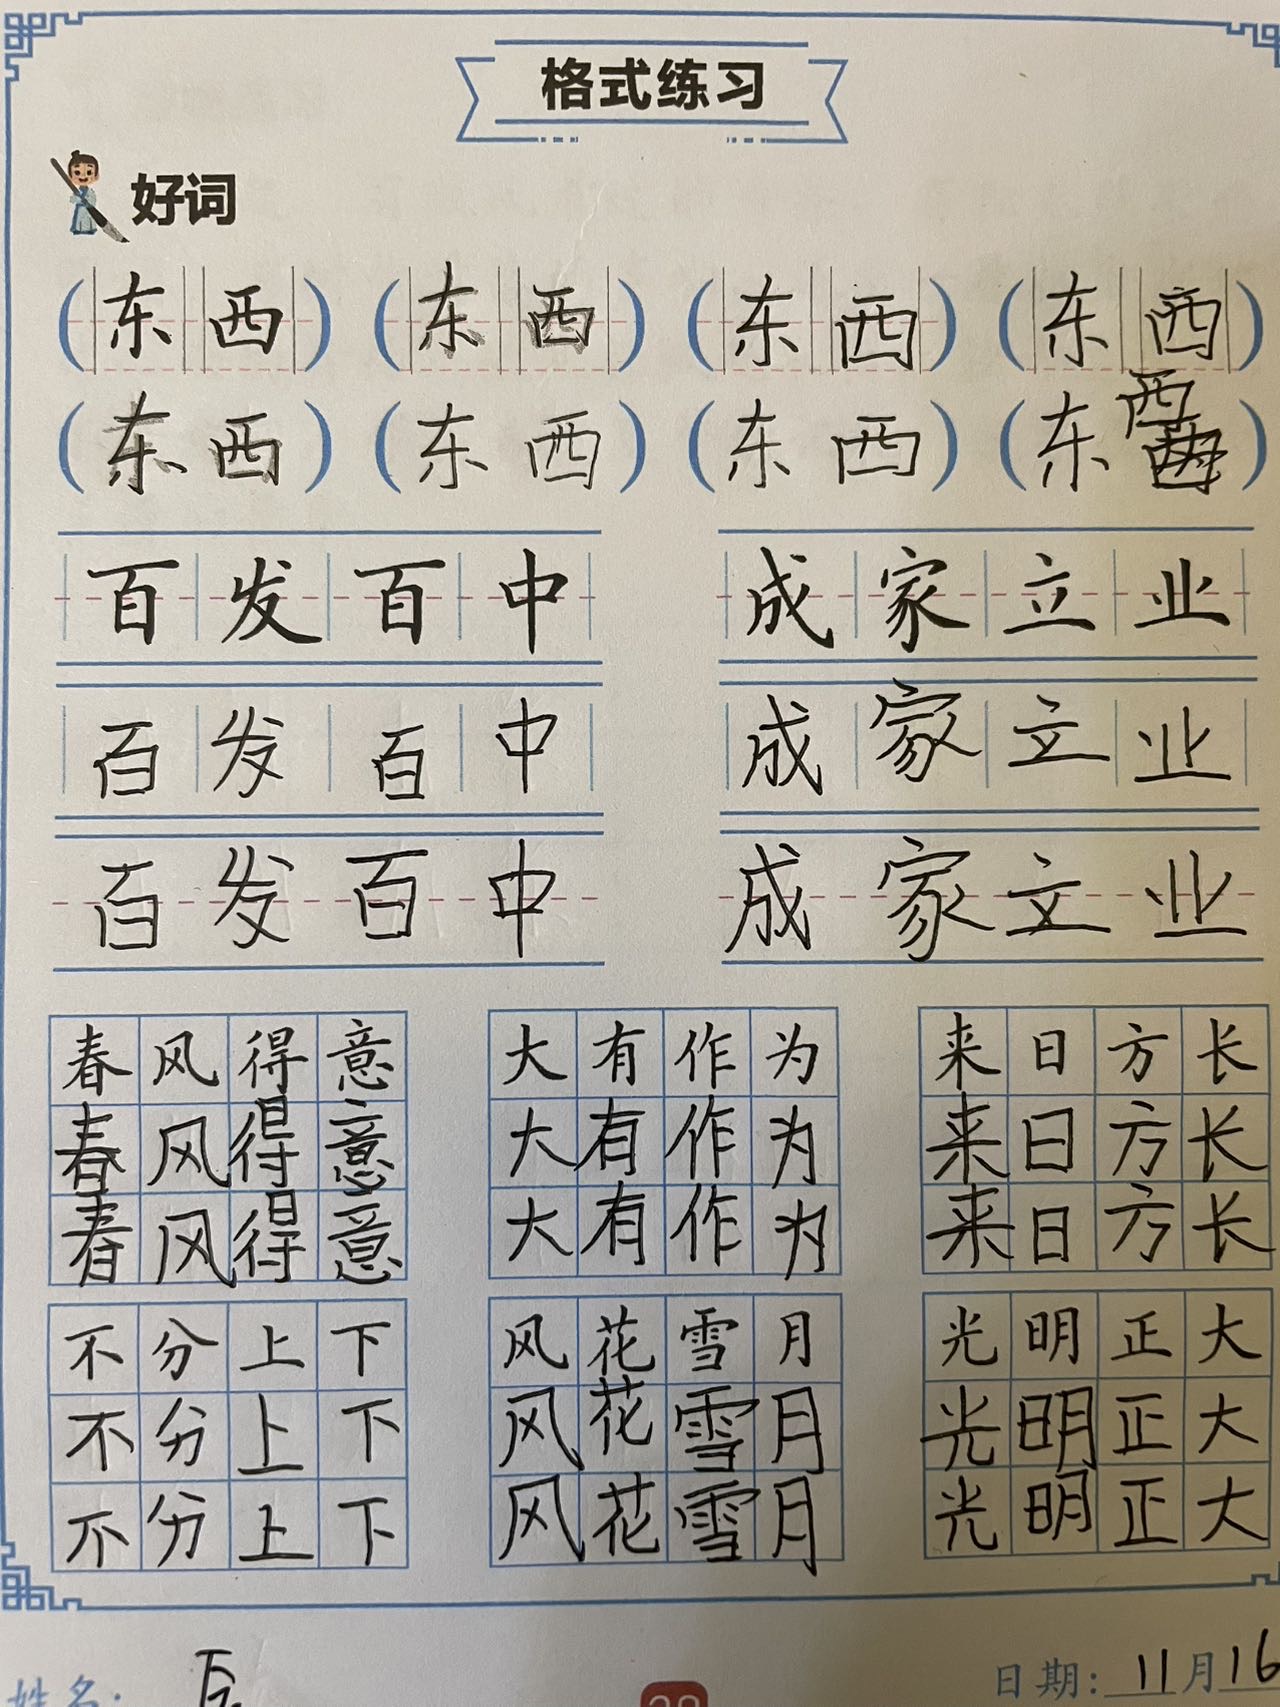 格式练习
好词
(东西) (东西) (东西) (东西)
西
(东西) (东西) (东西) (东
百发百中 成家立业
百发百中 成家立业
百发百中 成家立业
春风得意 大有作为 来日方长
春风得意 大有作为 来日方长
春风得意 大有作为 来日方长
不分上下 风花雪月 光明正大
不分上下 风花雪月 光明正大
不分上下 风花雪月 光明正大
姓名: 日期: 11月16